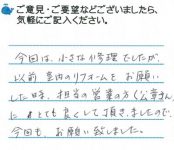 ご意見・ご要望などございましたら、
気軽にご記入ください。
今回は、小さな修理でしたが、
以前 室内のリフォームを お願い
した時、担当の営業の方(公章さん)
にとても良くして頂きましたので、
今回も、お願い致しました。